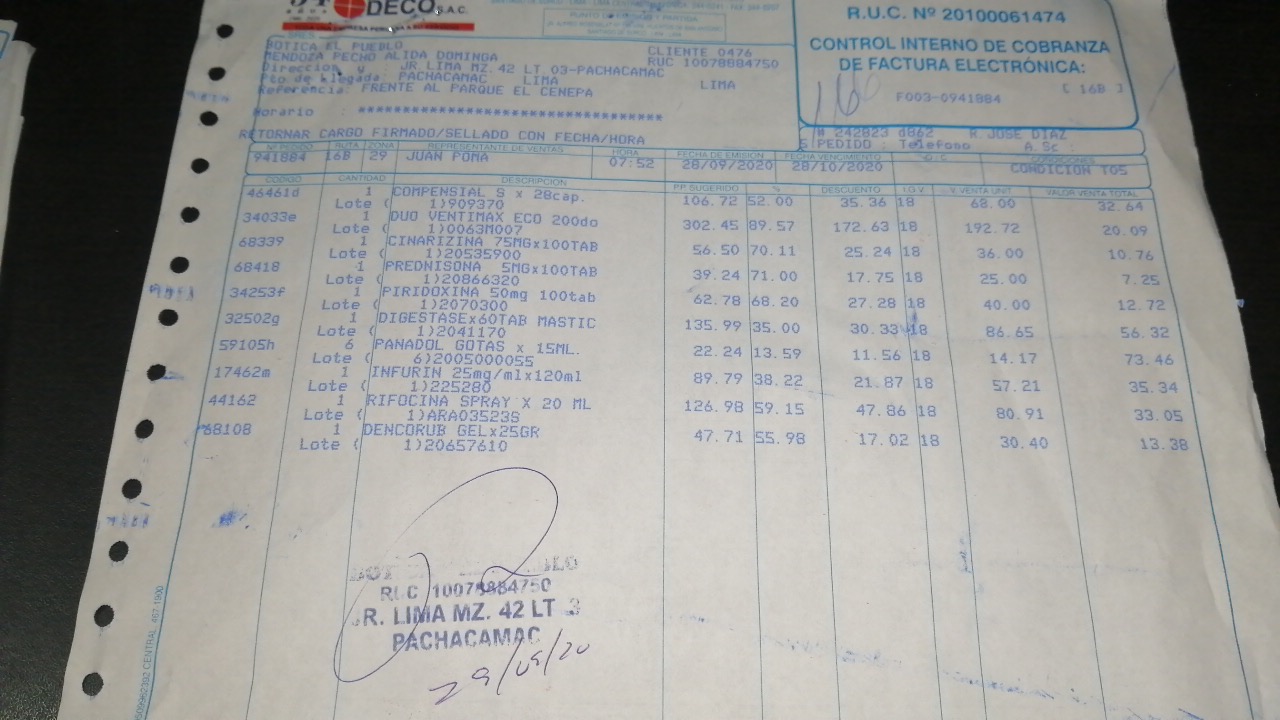 DECO S.A.C.
R.U.C. Nº 20100061474
CONTROL INTERNO DE COBRANZA
DE FACTURA ELECTRÓNICA:
F003-0941884 [ 16B ]
PUNTO DE PARTIDA
BOTICA EL PUEBLO CLIENTE 0476
MENDOZA PECHO ALIDA DOMINGA RUC 10078884750
Direccion y : JR. LIMA MZ. 42 LT 03-PACHACAMAC
Pto de Llegada: PACHACAMAC LIMA LIMA
Referencia: FRENTE AL PARQUE EL CENEPA
Horario :
RETORNAR CARGO FIRMADO/SELLADO CON FECHA/HORA
# 242823 d862 R.JOSE DIAZ
PEDIDO : Telefono A.Sc :
Nº PEDIDO RUTA ZONA REPRESENTANTE DE VENTAS HORA FECHA DE EMISIÓN FECHA VENCIMIENTO CONDICIONES
941884 16B 29 JUAN POMA 07:52 28/09/2020 28/10/2020 CONDICION T05
CÓDIGO CANTIDAD DESCRIPCIÓN P.P. SUGERIDO % DESCUENTO I.G.V. V. VENTA UNIT. VALOR VENTA TOTAL
46461d 1 COMPENSIAL S x 28cap. 106.72 52.00 35.36 18 68.00 32.64
Lote ( 1)909370
34033e 1 DUO VENTIMAX ECO 200do 302.45 89.57 172.63 18 192.72 20.09
Lote ( 1)0063M007
68339 1 CINARIZINA 75MGx100TAB 56.50 70.11 25.24 18 36.00 10.76
Lote ( 1)20535900
68418 1 PREDNISONA 5MGx100TAB 39.24 71.00 17.75 18 25.00 7.25
Lote ( 1)20866320
34253f 1 PIRIDOXINA 50mg 100tab 62.78 68.20 27.28 18 40.00 12.72
Lote ( 1)2070300
32502g 1 DIGESTASEx60TAB MASTIC 135.99 35.00 30.33 18 86.65 56.32
Lote ( 1)2041170
59105h 6 PANADOL GOTAS x 15ML. 22.24 13.59 11.56 18 14.17 73.46
Lote ( 6)2005000055
17462m 1 INFURIN 25mg/mlx120ml 89.79 38.22 21.87 18 57.21 35.34
Lote ( 1)225280
44162 1 RIFOCINA SPRAY X 20 ML 126.98 59.15 47.86 18 80.91 33.05
Lote ( 1)ARA03523S
68108 1 DENCORUB GELx25GR 47.71 55.98 17.02 18 30.40 13.38
Lote ( 1)20657610
RUC 10078884750
JR. LIMA MZ. 42 LT 3
PACHACAMAC
29/09/20